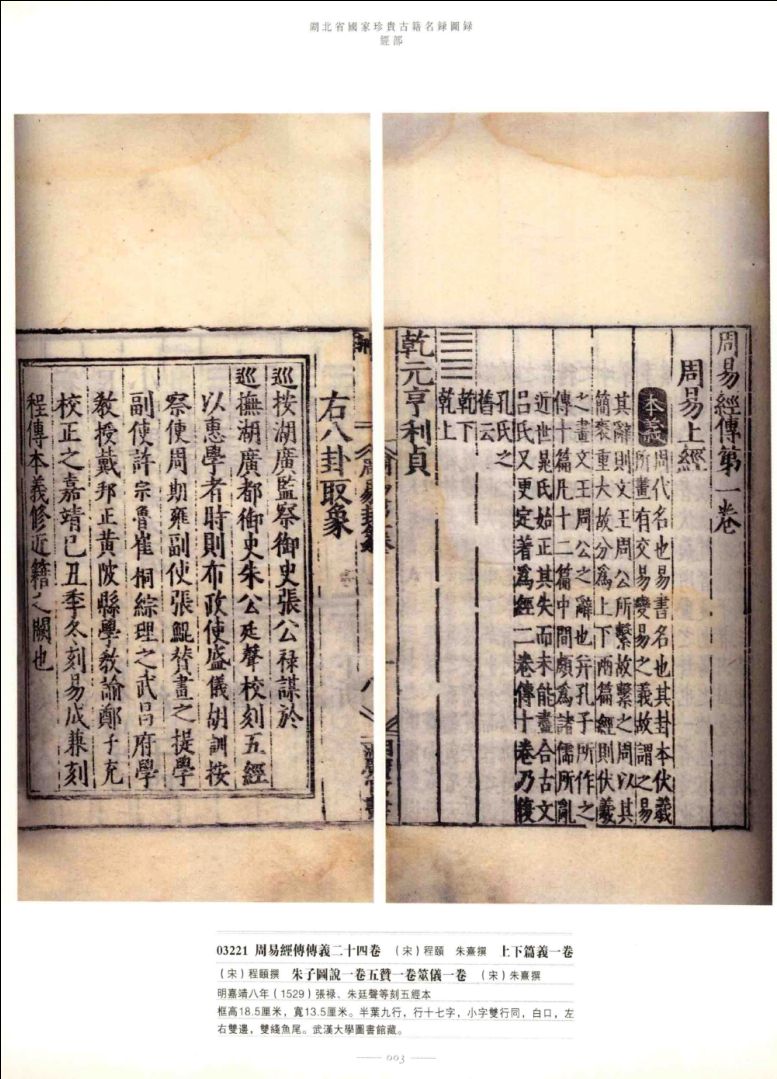 湖北省國家珍貴古籍名録圖録
經部
周易經傳第一卷
周易上經
本義
周代名也易書名也其卦本伏羲
所畫有交易變易之義故謂之易
其辭則文王周公所繫故繫之周以其
簡袠重大故分為上下兩篇經則伏羲
之畫文王周公之辭也并孔子所作之
傳十篇凡十二篇中間頗為諸儒所亂
近世晁氏始正其失而未能盡合古文
呂氏又更定著爲經二卷傳十卷乃復
孔氏之
舊云
乾下
乾上
乾元亨利貞
右八卦取象
巡按湖廣監察御史張公祿謀於
巡撫湖廣都御史朱公廷聲校刻五經
以惠學者時則布政使盛儀胡訓按
察使周期雍副使張鯤贊畫之提學
副使許宗魯崔桐綜理之武昌府學
教授戴邦正黃陂縣學教諭鄭子充
校正之嘉靖己丑季冬刻易成兼刻
程傳本義修近籍之闕也
03221 周易經傳傳義二十四卷 （宋）程頤 朱熹撰 上下篇義一卷
（宋）程頤撰 朱子圖説一卷五贊一卷筮儀一卷 （宋）朱熹撰
明嘉靖八年（1529）張祿、朱廷聲等刻五經本
框高18.5厘米，寬13.5厘米。半葉九行，行十七字，小字雙行同，白口，左
右雙邊，雙綫魚尾。武漢大學圖書館藏。
003